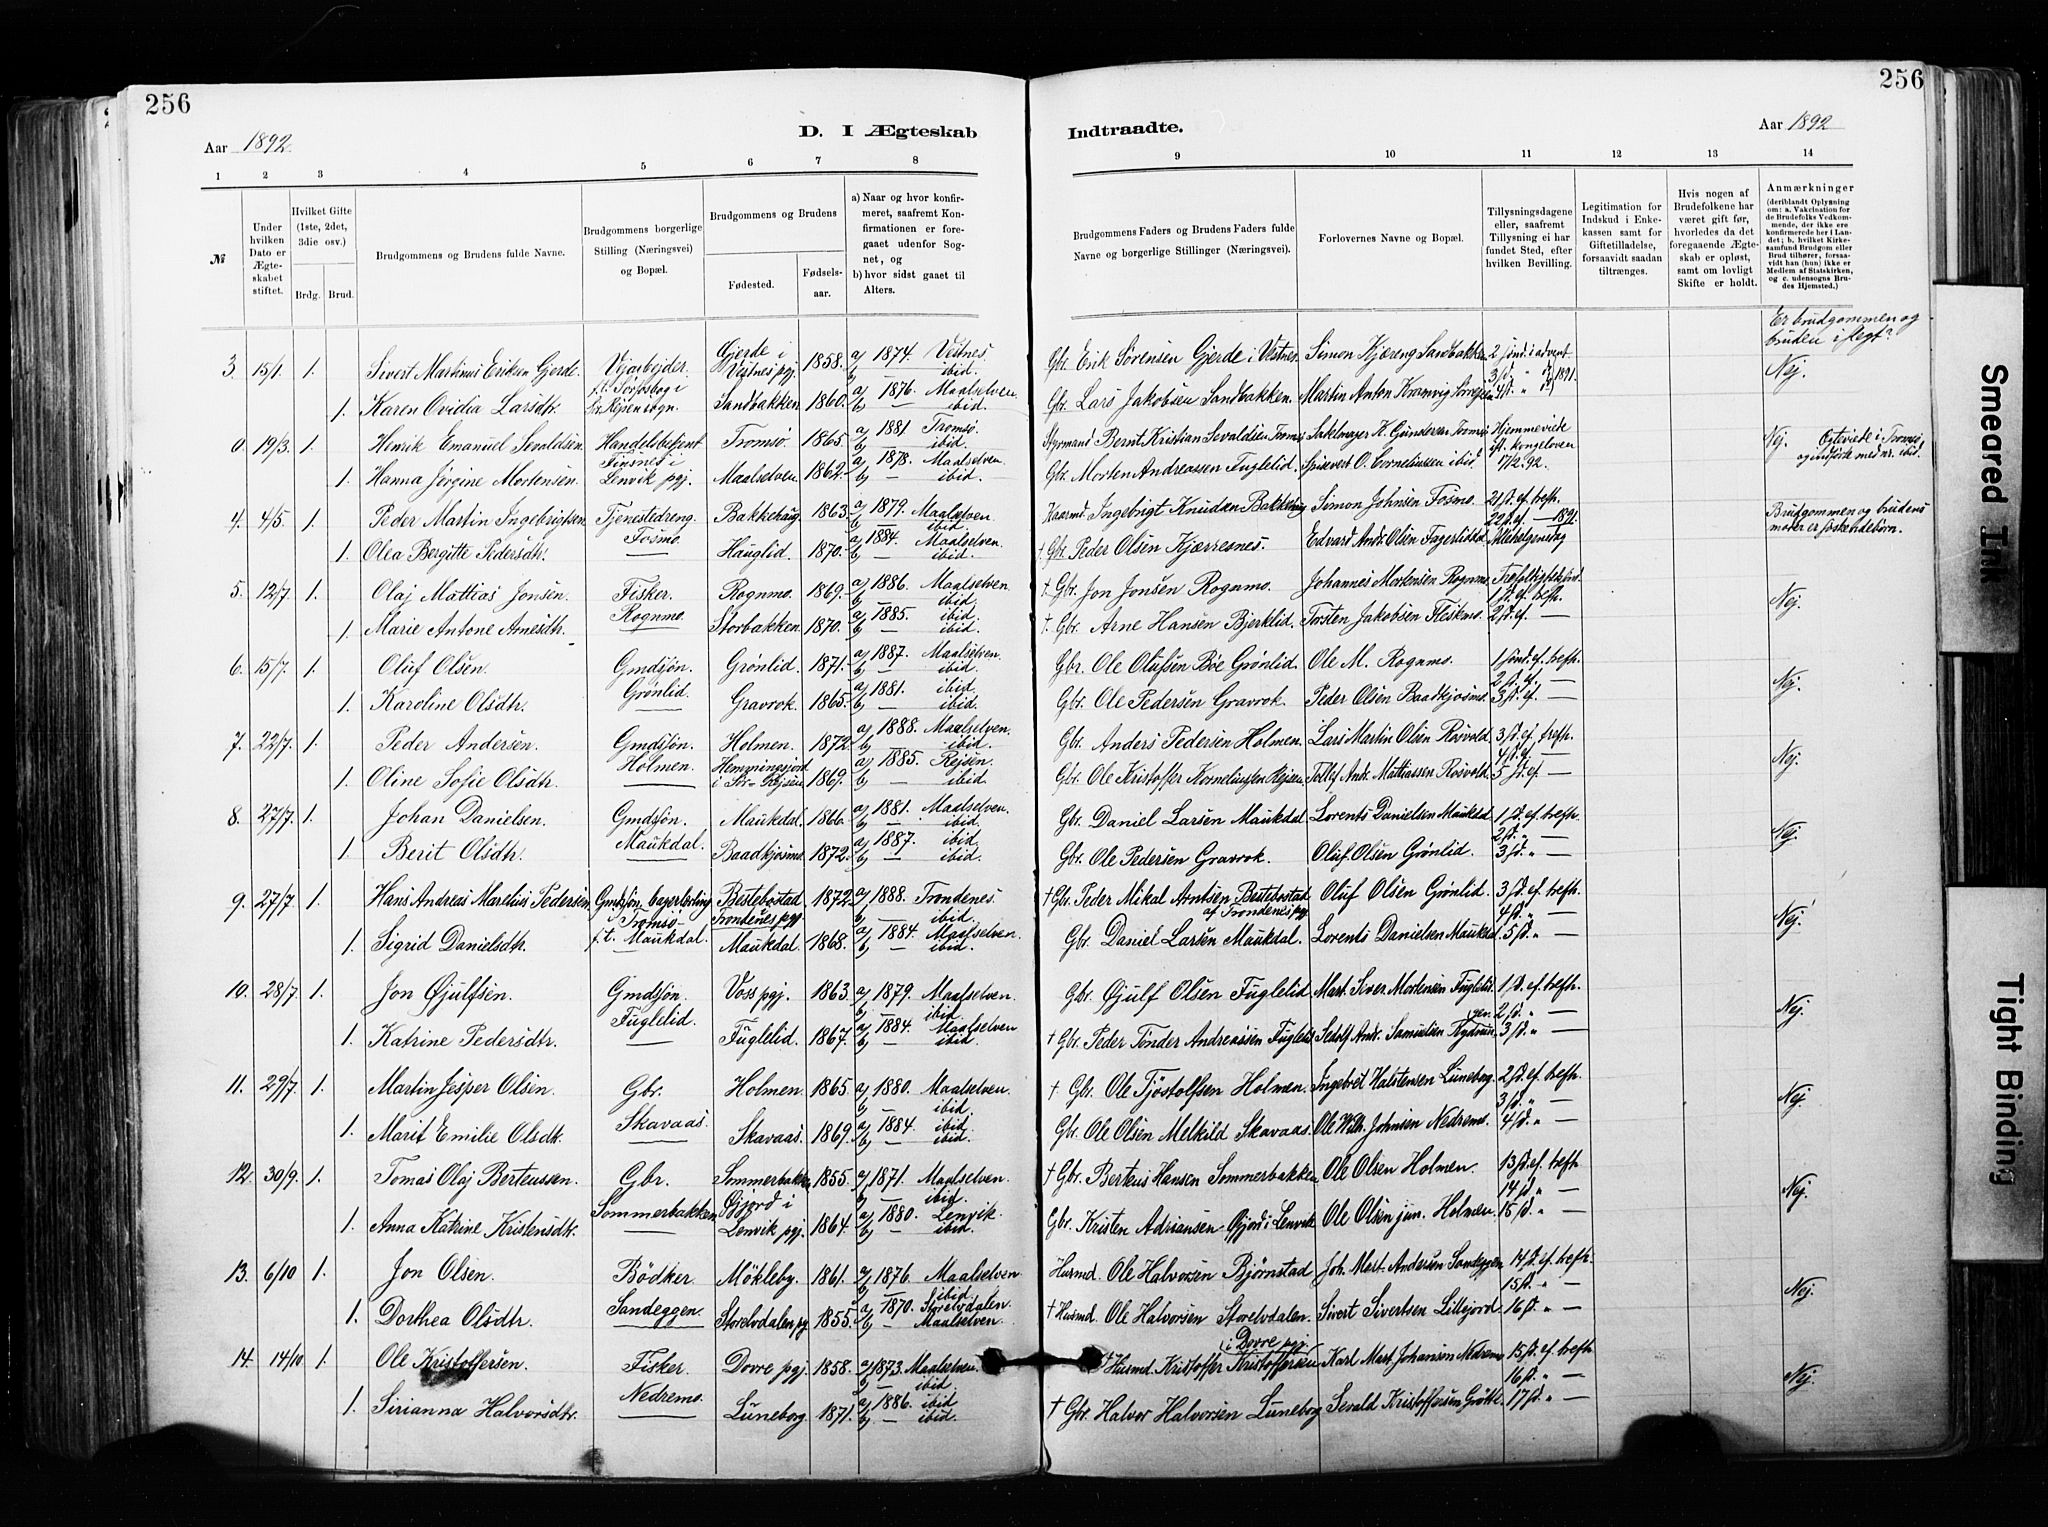 256
256
Aar 1892.
D. I Ægteskab
Indtraadte.
Aar 1892
1 2 3 4 5 6 7 8 9 10 11 12 13 14
№
Under hvilken Dato er Ægteskabet stiftet.
Hvilket Gifte (1ste, 2det, 3die osv.)
Brdg. Brud.
Brudgommens og Brudens fulde Navne.
Brudgommens borgerlige Stilling (Næringsvei) og Bopæl.
Brudgommens og Brudens
Fødested.
Fødselsaar.
a) Naar og hvor konfirmeret, saafremt Konfirmationen er foregaaet udenfor Sognet, og
b) hvor sidst gaaet til Alters.
Brudgommens Faders og Brudens Faders fulde Navne og borgerlige Stillinger (Næringsvei).
Forlovernes Navne og Bopæl.
Tillysningsdagene eller, saafremt Tillysning ei har fundet Sted, efter hvilken Bevilling.
Legitimation for Indskud i Enkekassen samt for Giftetilladelse, forsaavidt saadan tiltrænges.
Hvis nogen af Brudefolkene har været gift før, hvorledes da det foregaaende Ægteskab er opløst, samt om lovligt Skifte er holdt.
Anmærkninger (deriblandt Oplysning om: a. Vakcination for de Brudefolks Vedkommende, der ikke ere konfirmerede her i Landet; b. hvilket Kirkesamfund Brudgom eller Brud tilhører, forsaavidt han (hun) ikke er Medlem af Statskirken, og c. udensogns Brudes Hjemsted.)
Er brudgommen og bruden i slegt?
3. 15/1. 1. Sivert Martinus Eriksen Gjerde. Vejarbejder. Gjerde i Vestnes pgj. 1858. a) 1874. Vestnes. b) ibid. Gbr. Erik Sørensen Gjerde i Vestnes. Simon Kjæreng Sandbakken. 2 sønd. i advent Nej.
1. Karen Ovidia Larsdtr. Sandbakken. 1860. a) 1876. Maalselven. b) — ibid. Gbr. Lars Jakobsen Sandbakken. Martin Anton Kramvig 1891.
0. 19/3. 1. Henrik Emanuel Sevaldsen. Handelsbefent Finsnes i Lenvik pgj. Tromsø. 1865. a) 1881 Tromsø. b) ibid. Styrmand Bernt Kristian Sevaldsen Tromsø. H. Gundersen Tromsø Hjemmeviede eft. kongeloven 17/2. 92. Nej. Egteviede i Tromsø, og indførte med nr. ibid.
1. Hanna Jørgine Mortensen. Maalselven 1862. a) 1878. Maalselven. b) — ibid. Gbr. Morten Andreassen Fuglelid. O. Corneliussen ibid.
4. 4/5. 1. Peder Martin Ingebrigtsen. Tjenestedreng. Fosmo. Bakkehaug. 1863. a) 1879. Maalselven. b) ibid. Ingebrigt Knudsen Simon Johnsen Fosmo. 21 s. ef. trefh. 22 s. ef. — 1891. Brudgommen og brudens moder er søskendebørn.
1. Olea Bergitte Pedersdtr. Hauglid. 1870. a) 1884. Maalselven. b) — ibid. † Gbr. Peder Olsen Kjærresnes. Edvard Andr. Olsen Fagerlidal. Allehelgensdag
5. 12/7. 1. Olaj Mattias Jonsen. Fisker. Rognmo. Rognmo. 1869. a) 1886. Maalselven b) ibid. † Gbr. Jon Jonsen Rognmo. Johannes Mortensen Rognmo. Trefoldighedssønd. 1 s. ef. trefh. Nej.
1. Marie Antone Arnesdtr. Storbakken. 1870. a) 1885. ibid. b) — ibid. † Gbr. Arne Hansen Bjerklid. Torsten Jakobsen Fleskmo. 2 s. ef. —
6. 15/7. 1. Oluf Olsen. Gmdsjøn. Grønlid. Grønlid. 1871. a) 1887. Maalselven. b) ibid. Gbr. Ole Olufsen Bøe Grønlid. Ole M. Rognmo. 1 sønd. ef. trefh. 2 s. ef. — Nej.
1. Karoline Olsdtr. Gravrok. 1865. a) 1881. ibid. b) — ibid. Gbr. Ole Pedersen Gravrok. Peder Olsen Baadkjosmo. 3 s. ef. —
7. 22/7. 1. Peder Andersen. Gmdsjøn. Holmen. Holmen. 1872. a) 1888. Maalselven. b) ibid. Gbr. Anders Pedersen Holmen. Lars Martin Olsen Rosvold. 3 s. ef. trefh. 4 s. ef. — Nej.
1. Oline Sofie Olsdtr. Hemmingsjord i Sør-Rejsen 1869. a) 1885. Rejsen. b) — ibid. Gbr. Ole Kristoffer Korneliussen Rejsen. Tollef Andr. Mathiassen Rosvold. 5 s. ef. —
8. 27/7. 1. Johan Danielsen. Gmdsjøn. Maukdal. Maukdal. 1866. a) 1881. Maalselven. b) — ibid. Gbr. Daniel Larsen Maukdal. Lorents Danielsen Maukdal. 1 s. ef. trefh. 2 s. " — Nej.
1. Berit Olsdtr. Baadkjosmo. 1872. a) 1887. ibid. b) — ibid. Gbr. Ole Pedersen Gravrok. Oluf Olsen Grønlid. 3 s. " —
9. 27/7. 1. Hans Andreas Marelius Pedersen. Gmdsjøn. bagerlærling Tromsø f.t. Maukdal. Bestebostad Trondenes pgj. 1872. a) 1888. Trondenes. b) ibid. † Gbr. Peder Mikal Arntsen Bestebostad af Trondenes pgj. Oluf Olsen Grønlid. 3 s. ef. trefh. 4 s. " — Nej.
1. Sigrid Danielsdtr. Maukdal. 1868. a) 1884. Maalselven. b) — ibid. Gbr. Daniel Larsen Maukdal. Lorents Danielsen Maukdal. 5 s. " —
10. 28/7. 1. Jon Øjulfsen. Gmdsjøn. Fuglelid. Voss pgj. 1863. a) 1879. Maalselven. b) ibid. Gbr. Øjulf Olsen Fuglelid. Mart. Iver Mortensen Fuglelid. 1 s. ef. trefh. 2 s. " — Nej.
1. Katrine Pedersdtr. Fuglelid. 1867. a) 1884. Maalselven b) — ibid. † Gbr. Peder Tønder Andreassen Fuglelid. Andr. Samuelsen 3 s. " —
11. 29/7. 1. Martin Jesper Olsen. Gbr. Skavaas. Holmen. 1865. a) 1880. Maalselven. b) ibid. † Gbr. Ole Tjøstolfsen Holmen. Ingebret Halstensen Luneborg. 2 s. ef. trefh. 3 s. " — Nej.
1. Marit Emilie Olsdtr. Skavaas. 1869. a) 1884. ibid. b) — ibid. Gbr. Ole Olsen Melkild Skavaas. Ole Wilh. Johnsen Nedremo. 4 s. " —
12. 30/9. 1. Tomas Olaj Berteussen. Gbr. Sommerbakken Sommerbakken 1855. a) 1871. Maalselven. b) ibid. † Gbr. Berteus Hansen Sommerbakken. Ole Olsen Holmen. 13 s. ef. trefh. 14 s. " — Nej.
1. Anna Katrine Kristensdtr. Gjord i Lenvik pgj. 1864. a) 1880. Lenvik. b) — ibid. Gbr. Kristen Adriansen Ole Olsen jun. Holmen. 15 s. " —
13. 6/10 1. Jon Olsen. Bødker. Sandeggen. Møkleby. 1861. a) 1876. Maalselven. b) ibid. Husmd. Ole Halvorsen Bjørnstad Joh. Mart. Andersen Sandeggen 14 s. ef. trefh. 15 s. " — Nej.
1. Dorthea Olsdtr. Storelvdalen pgj. 1855. a) 1870. Storelvdalen. b) — Maalselven. † Husmd. Ole Halvorsen Storelvdalen. Sivert Sivertsen Lillejord. 16 s. " —
14. 14/10 1. Ole Kristoffersen. Fisker. Nedremo. Dovre pgj. 1858. a) 1873. Maalselven. b) ibid † Husmd. Kristoffer Kristoffersen i Dovre pgj. Karl Mart. Johansen Nedremo 15 s. ef. trefh 16 s. " — Nej.
1. Sirianna Halvorsdtr. Luneborg 1871. a) 1886. ibid b) — ibid. † Gbr. Halvor Halvorsen Luneborg Sevald Kristoffersen Grøtte. 17 s. " —
Smeared Ink
Tight Binding